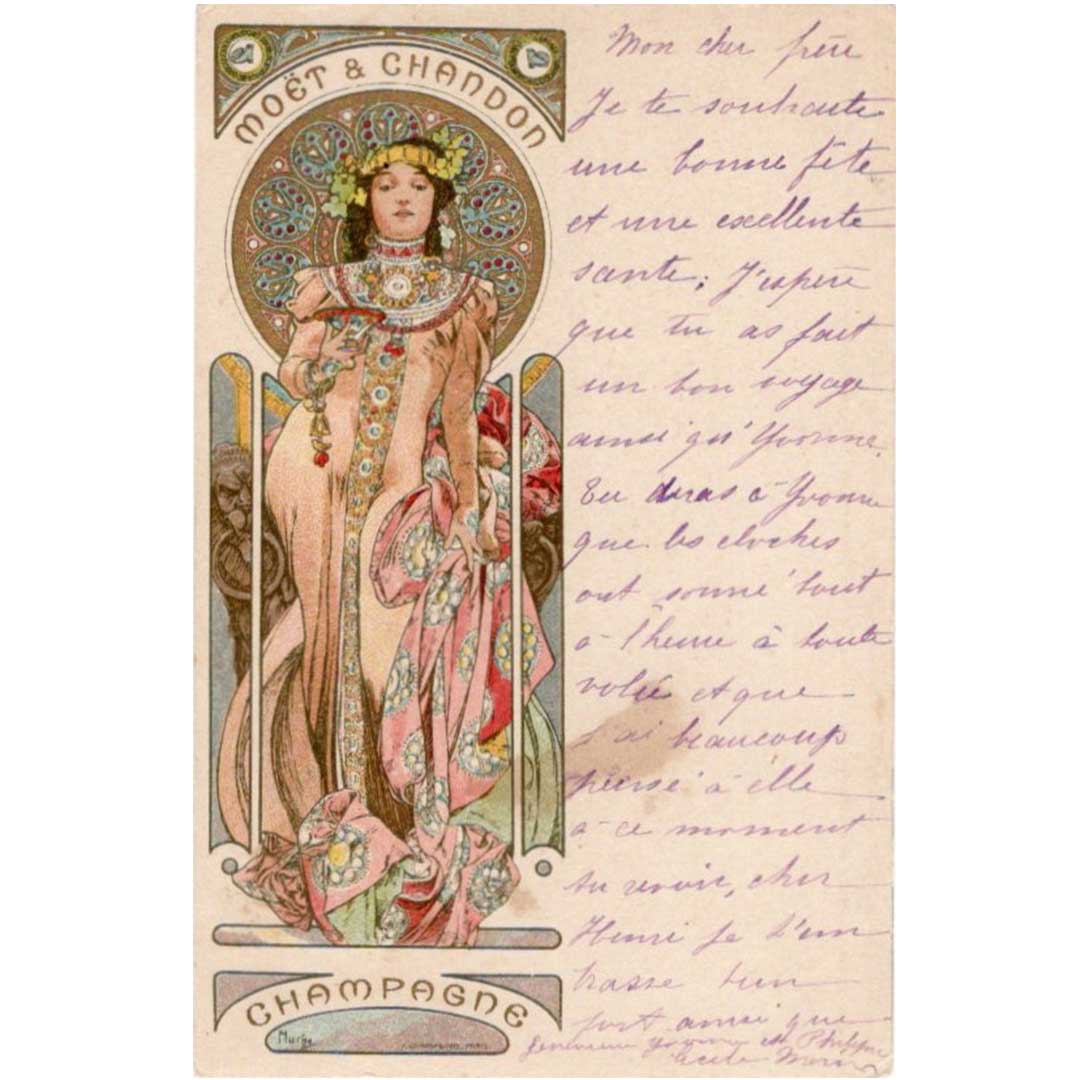 MOËT & CHANDON
CHAMPAGNE
Mucha
Mon cher frère
Je te souhaite
une bonne fête
et une excellente
sante; J'espère
que tu as fait
un bon voyage
ainsi qu'Yvonne.
Tu diras à Yvonne
que les cloches
ont sonné tout
a l'heure à toute
volée et que
j'ai beaucoup
pensé à elle
a ce moment
Au revoir, cher
Henri je t'em
brasse bien
fort ainsi que
Yvonne et Philippe
Cécile